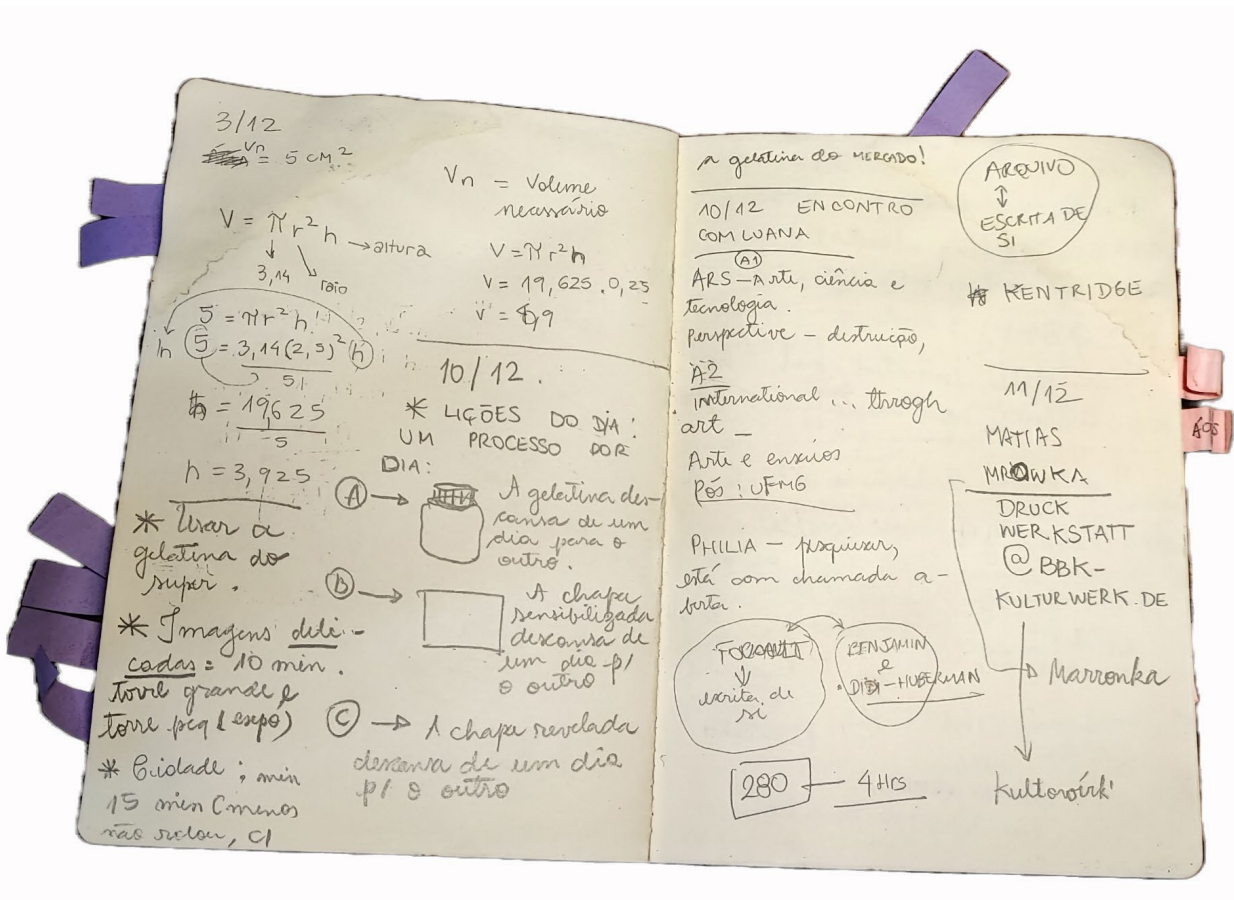 3/12
Vn = 5 CM²
Vn = Volume
necessário
V = π r² h → altura
3,14
raio
5 = πr² h
h 5 = 3,14 (2,5)² h
5
h = 19,625
5
h = 3,925
V = πr² h
V = 19,625 . 0,25
V = 4,9
* Usar a
gelatina do
super.
* Imagens deli-
cadas = 10 min.
torre grande e
torre peq (expo)
* Cidade ; min
15 min (menos
não rolou, c/
10/12.
* LIÇÕES DO DIA:
UM PROCESSO POR
DIA:
A → A gelatina des-
cansa de um
dia para o
outro.
B → A chapa
sensibilizada
descansa de
um dia p/
o outro
C → A chapa revelada
descansa de um dia
p/ o outro
a gelatina do MERCADO!
10/12 ENCONTRO
COM LUANA
A1
ARS – Arte, ciência e
tecnologia.
Perspective – destruição,
A2
International ... throgh
art –
Arte e ensaios
Pós : UFMG
PHILIA – pesquisar,
está com chamada a-
berta.
FOUCAULT
↓
escrita de
si
BENJAMIN
e
DIDI-HUBERMAN
280 — 4 Hrs
ARQUIVO
↕
ESCRITA DE
SI
* KENTRIDGE
11/12
MATIAS
MROWKA
DRUCK
WERKSTATT
@ BBK-
KULTURWERK.DE
Marronka
Kultovórk'
ÁOS